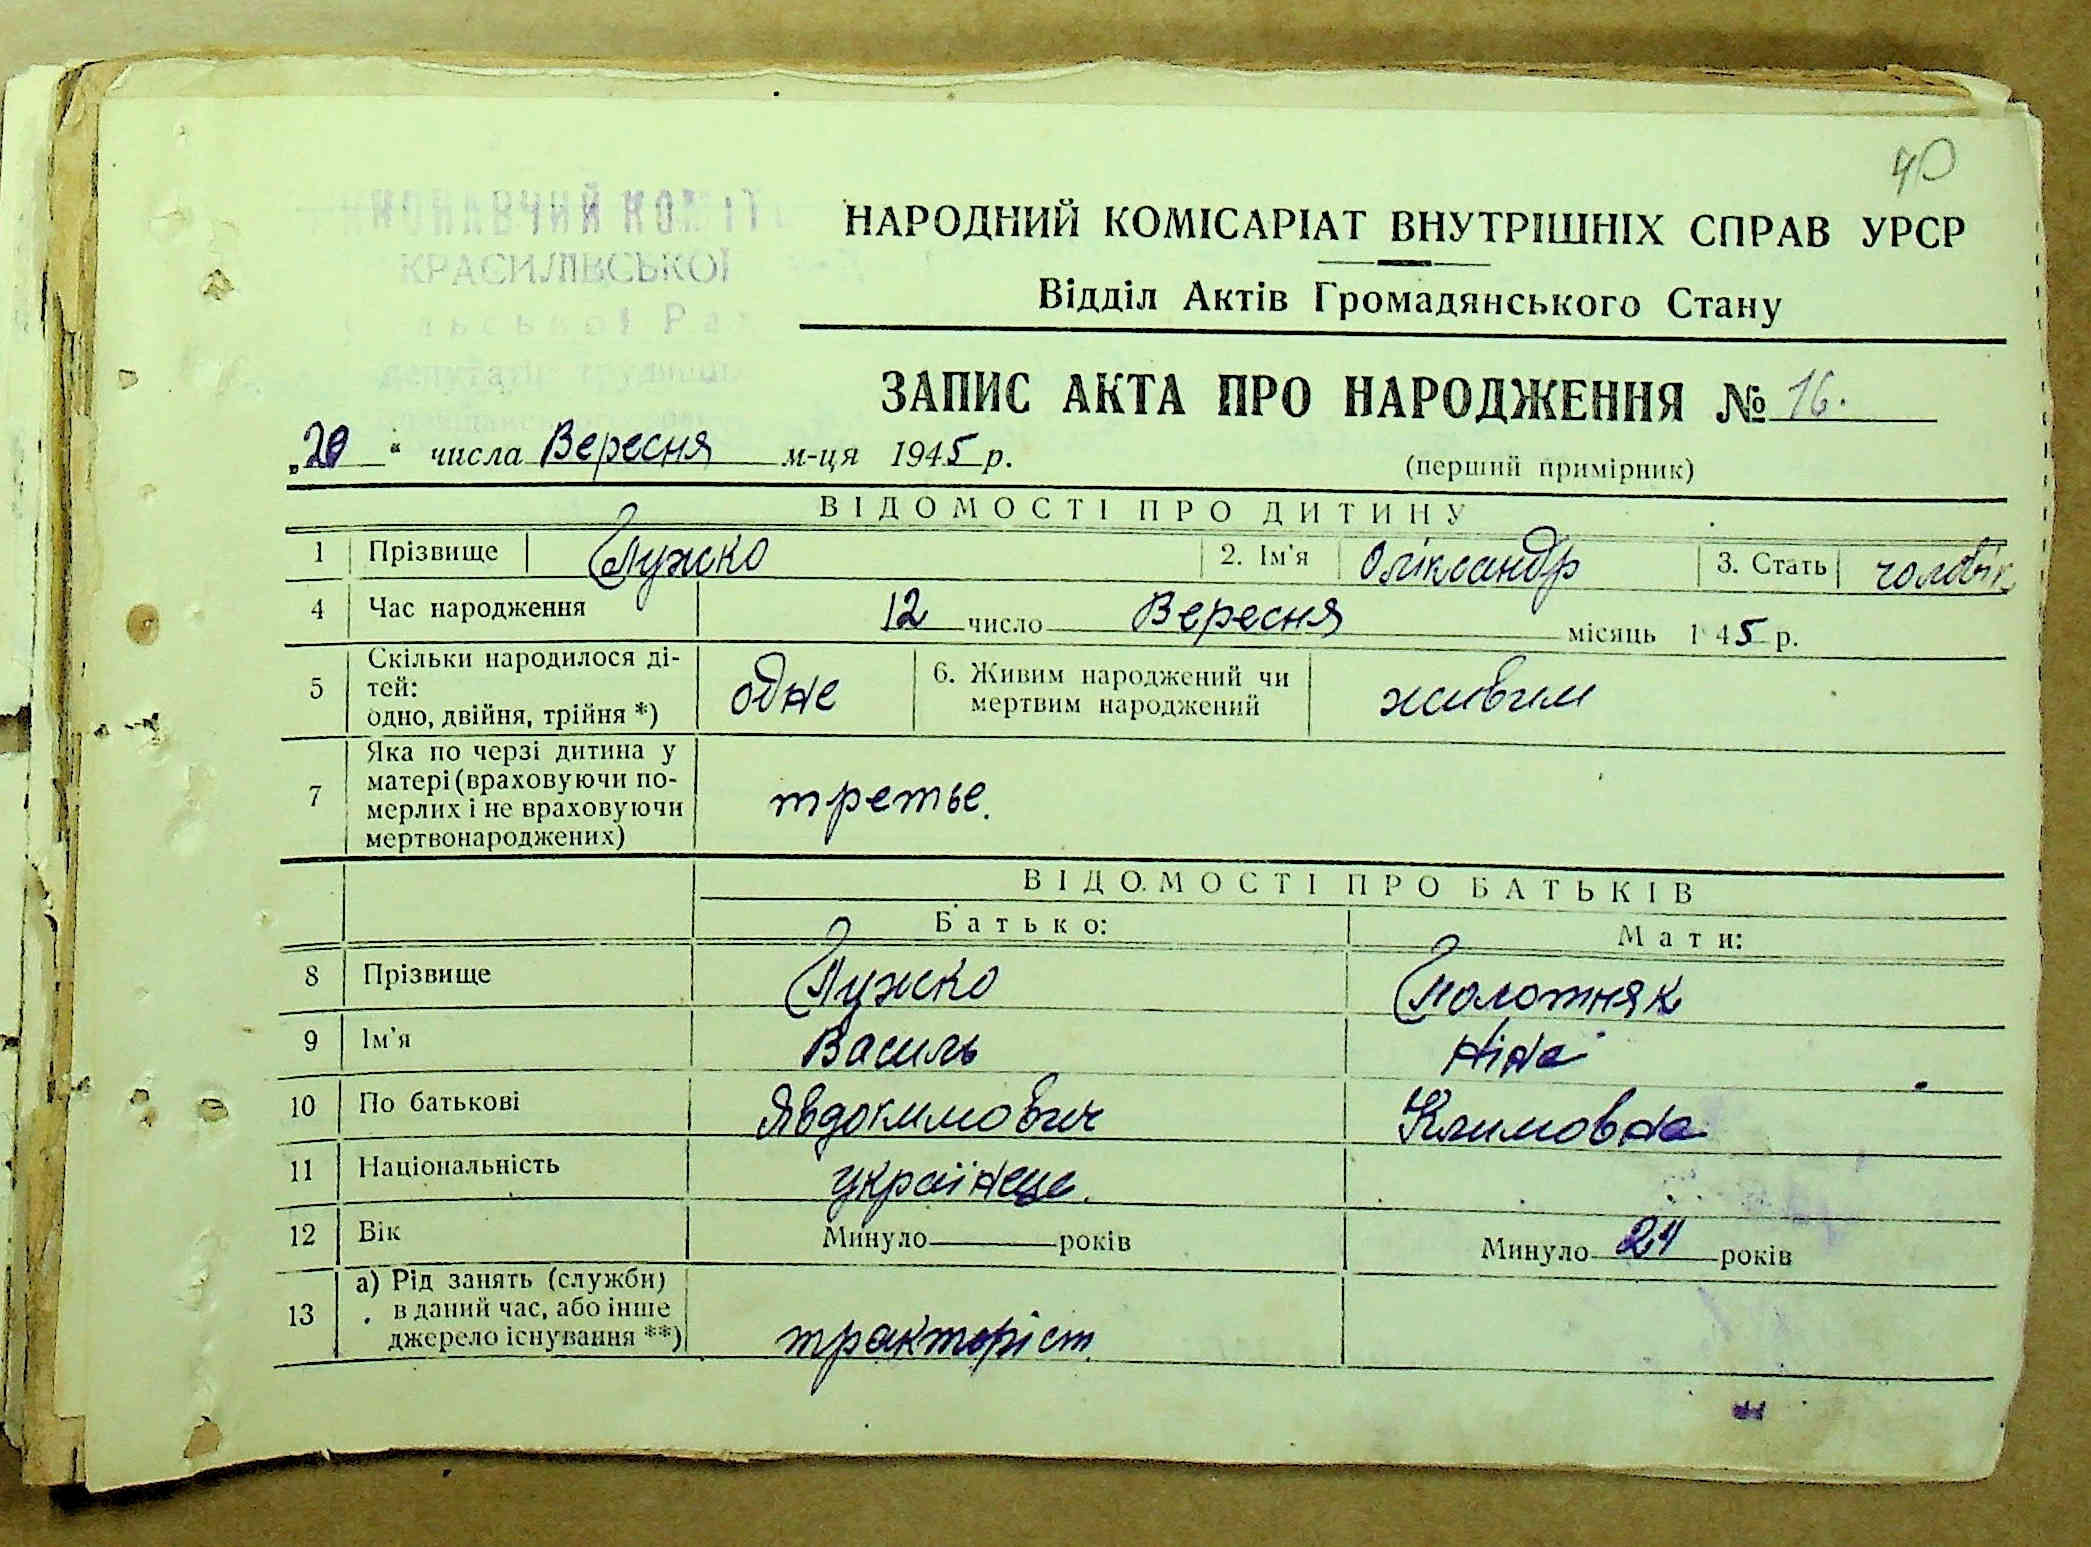 40
КОМІТ
КРАСИЛІВСЬКОЇ
НАРОДНИЙ КОМІСАРІАТ ВНУТРІШНІХ СПРАВ УРСР
Відділ Актів Громадянського Стану
ЗАПИС АКТА ПРО НАРОДЖЕННЯ № 16.
„20“ числа Вересня м-ця 1945 р.
(перший примірник)
ВІДОМОСТІ ПРО ДИТИНУ
1 Прізвище Глужко 2. Ім'я Оліксандр 3. Стать чоловік
4 Час народження 12 число Вересня місяць 1945 р.
5 Скільки народилося ді-
тей:
одно, двійня, трійня *) одне 6. Живим народжений чи
мертвим народжений живим
7 Яка по черзі дитина у
матері (враховуючи по-
мерлих і не враховуючи
мертвонароджених) третье.
ВІДОМОСТІ ПРО БАТЬКІВ
Батько: Мати:
8 Прізвище Глужко Полотняк
9 Ім'я Василь Ніна
10 По батькові Явдокимович Климовна
11 Національність українець.
12 Вік Минуло років Минуло 24 років
13 а) Рід занять (служби)
в даний час, або інше
джерело існування **) тракторіст.